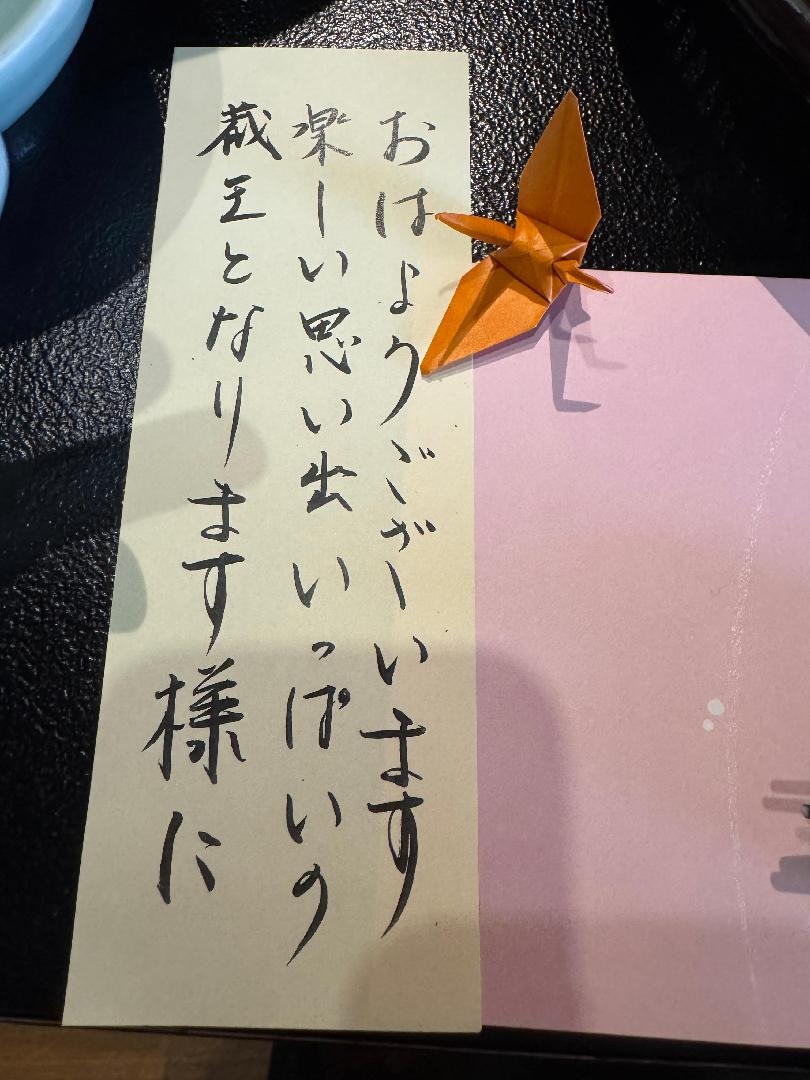 おはようございます
楽しい思い出いっぱいの
蔵王となります様に